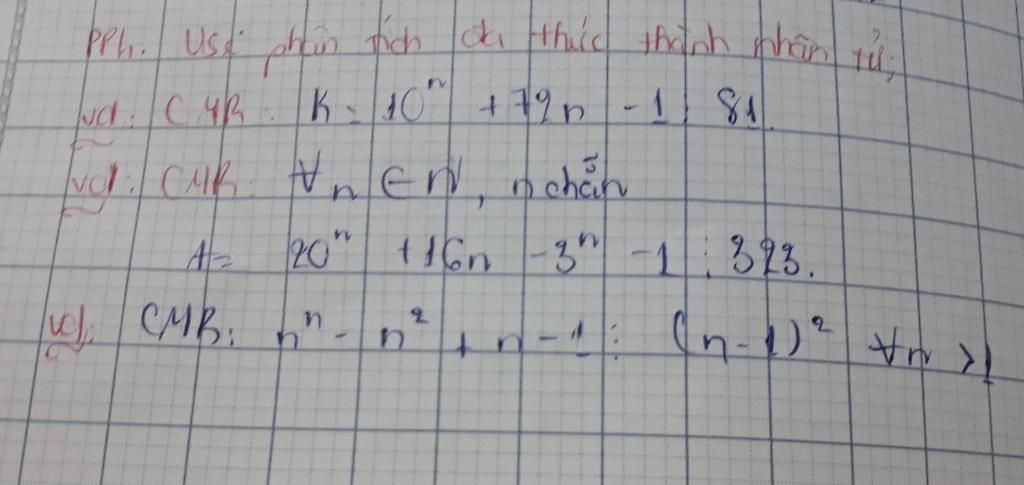 PPh. Usd phân tích đa thức thành nhân tử;
vd: CMR: K = 10ⁿ + 72n - 1 ⋮ 81.
vd: CMR: ∀n ∈ N, n chẵn
A = 20ⁿ + 16n - 3ⁿ - 1 ⋮ 323.
vd: CMR: nⁿ - n² + n - 1 ⋮ (n - 1)² ∀n > 1